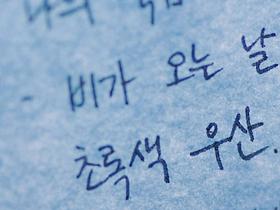 나의
- 비가 오는 날
초록색 우산.